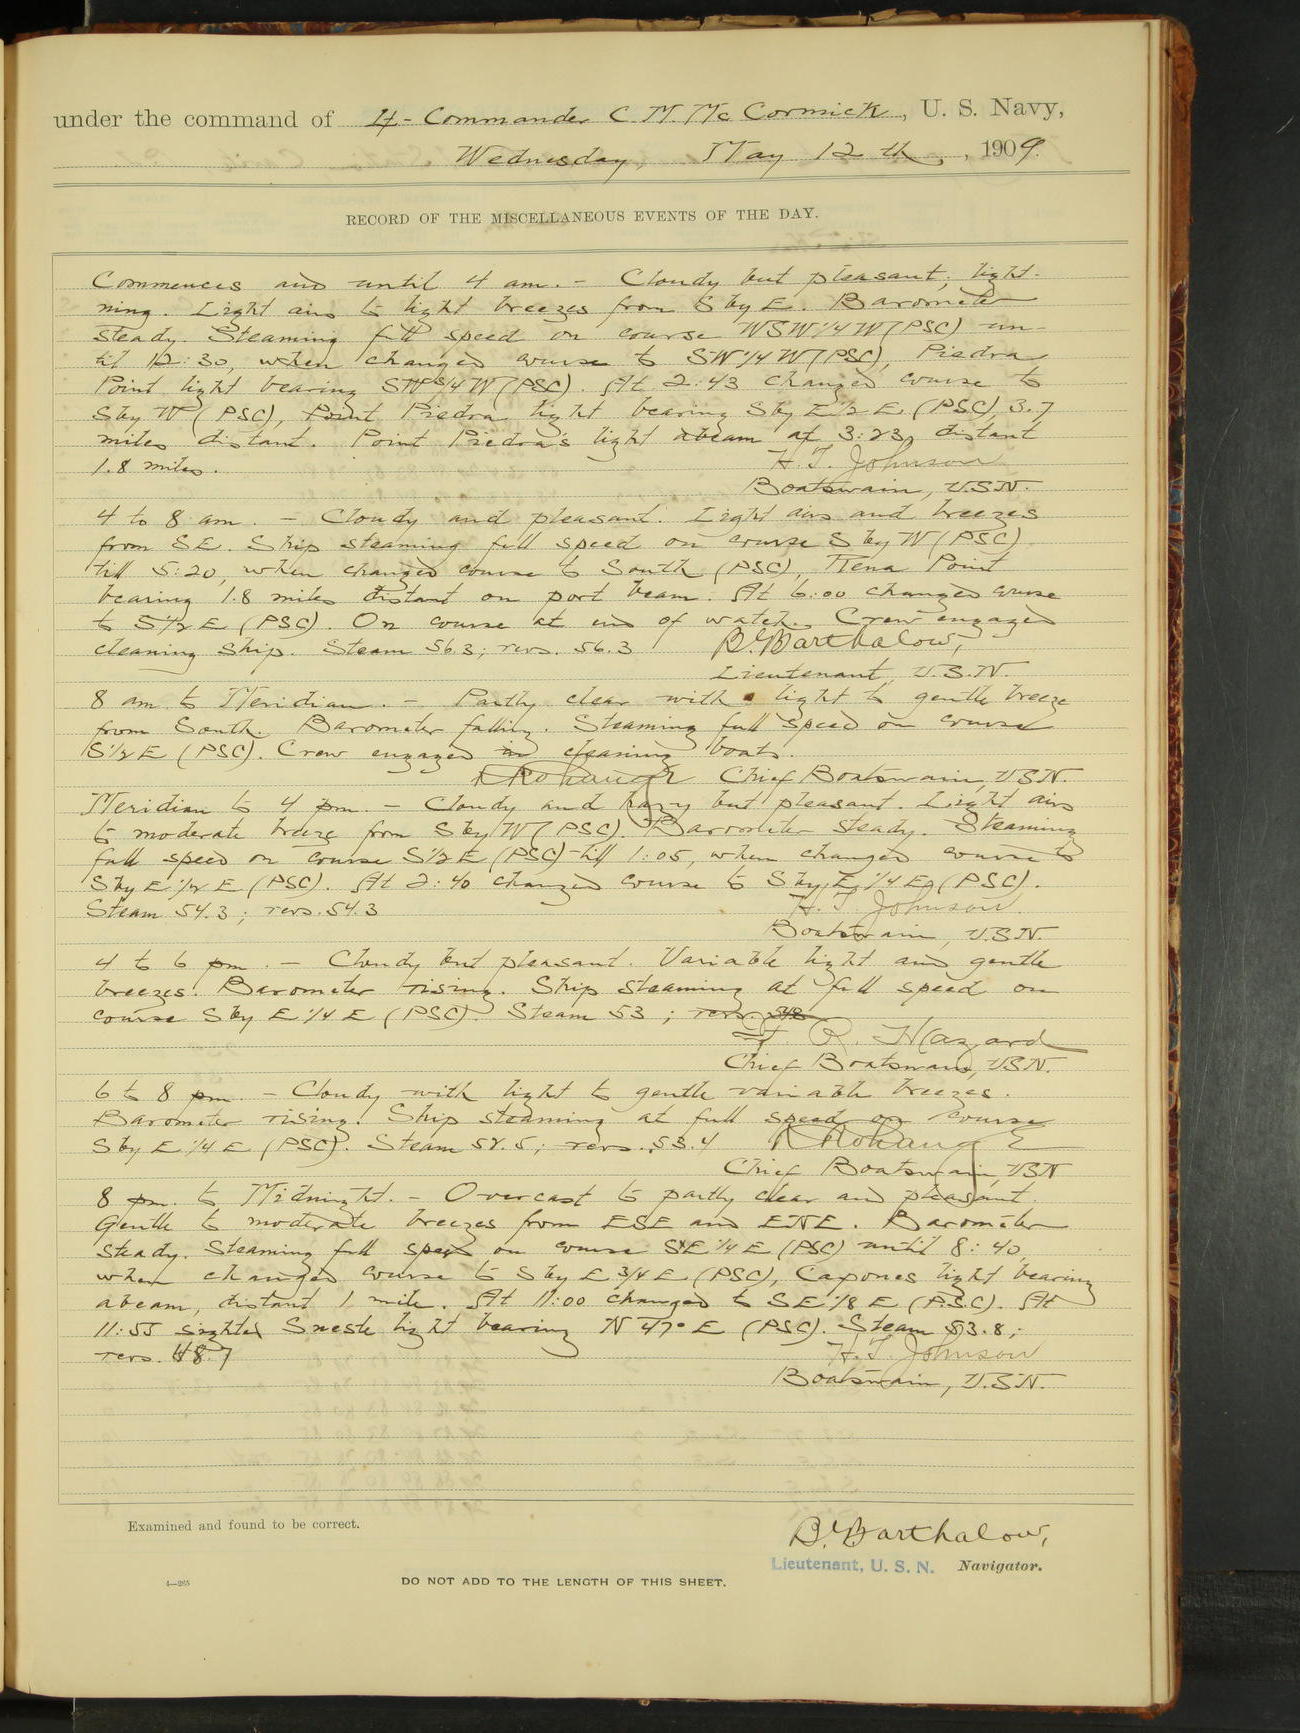 under the command of Lt-Commander C. M. Mc Cormick, U. S. Navy,
Wednesday, May 12th, 1909.
RECORD OF THE MISCELLANEOUS EVENTS OF THE DAY.
Commences and until 4 am. - Cloudy but pleasant; light-
ning. Light airs to light breezes from S by E. Barometer
steady. Steaming full speed on course WSW 1/4 W (PSC) un-
til 12:30, when changed course to SW 1/4 W (PSC), Piedra
Point light bearing SW 3/4 W (PSC). At 2:43 changed course to
S by W (PSC), Point Piedra light bearing S by E 1/2 E (PSC), 3.7
miles distant. Point Piedra's light abeam at 3:23, distant
1.8 miles.
H. T. Johnson
Boatswain, U.S.N.
4 to 8 am. - Cloudy and pleasant. Light airs and breezes
from SE. Ship steaming full speed on course S by W (PSC)
till 5:20, when changed course to South (PSC), Tena Point
bearing 1.8 miles distant on port beam. At 6:00 changed course
to S 1/2 E (PSC). On course at end of watch. Crew engaged
cleaning ship. Steam 56.3; revs. 56.3
B. Y. Barthalow,
Lieutenant, U.S.N.
8 am to Meridian. - Partly clear with light to gentle breeze
from South. Barometer falling. Steaming full speed on course
S 1/2 E (PSC). Crew engaged in cleaning boats.
Chief Boatswain, USN.
Meridian to 4 pm. - Cloudy and hazy but pleasant. Light airs
to moderate breeze from S by W (PSC). Barometer steady. Steaming
full speed on course S 1/2 E (PSC) till 1:05, when changed course to
S by E 1/2 E (PSC). At 2:40 changed course to S by E 1/4 E (PSC).
Steam 54.3; revs. 54.3
H. T. Johnson.
Boatswain, U.S.N.
4 to 6 pm. - Cloudy but pleasant. Variable light and gentle
breezes. Barometer rising. Ship steaming at full speed on
course S by E 1/4 E (PSC). Steam 53; revs.
F. R. Hazard
Chief Boatswain, USN.
6 to 8 pm. - Cloudy with light to gentle variable breezes.
Barometer rising. Ship steaming at full speed on course
S by E 1/4 E (PSC). Steam 52.5; revs. 53.4
Chief Boatswain, USN
8 pm. to Midnight. - Overcast to partly clear and pleasant.
Gentle to moderate breezes from ESE and ENE. Barometer
steady. Steaming full speed on course SxE 1/4 E (PSC) until 8:40,
when changed course to S by E 3/4 E (PSC), Capones light bearing
abeam, distant 1 mile. At 11:00 changed to SE 1/8 E (P.S.C). At
11:55 sighted light bearing N 47° E (PSC). Steam 53.8;
revs. 48.7
H. T. Johnson
Boatswain, U.S.N.
Examined and found to be correct.
B. Y. Barthalow,
Lieutenant, U. S. N. Navigator.
4—265
DO NOT ADD TO THE LENGTH OF THIS SHEET.